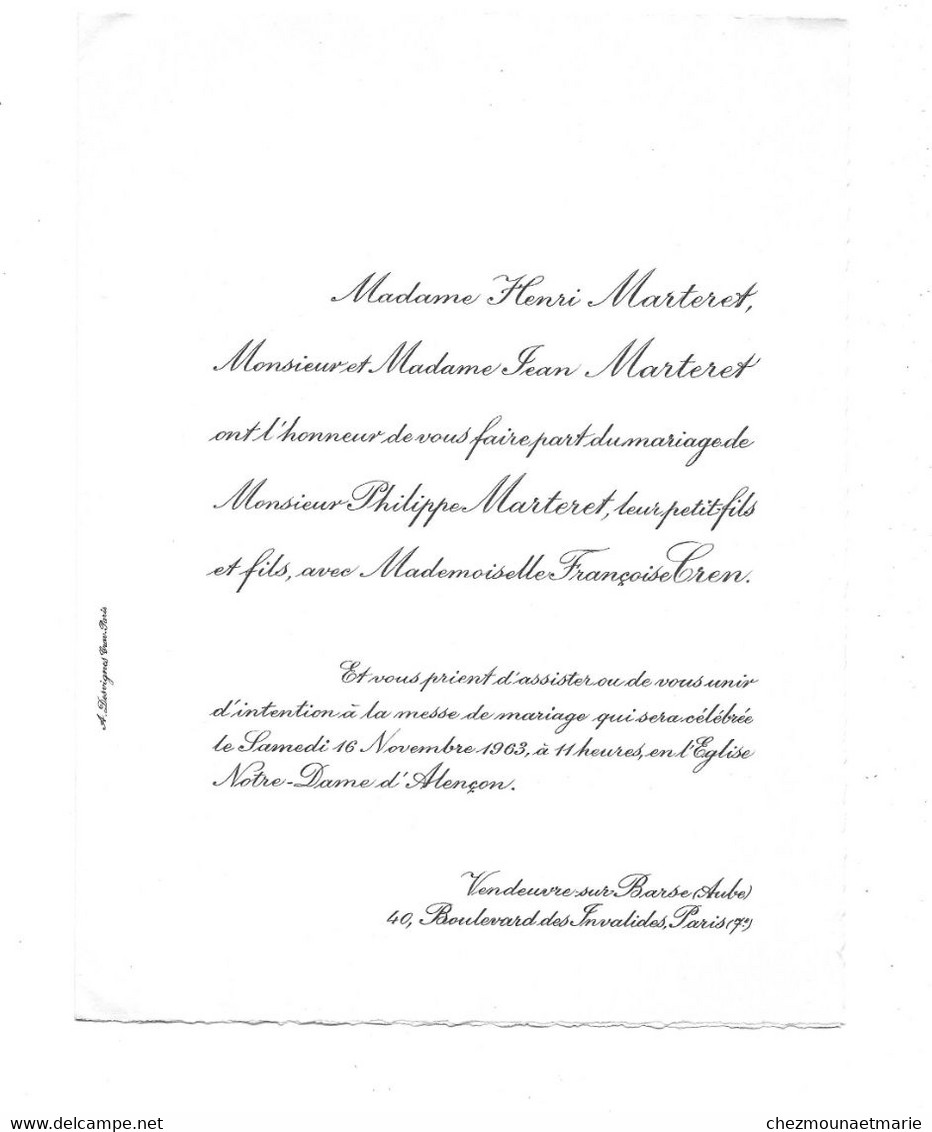 Madame Henri Marteret,
Monsieur et Madame Jean Marteret
ont l'honneur de vous faire part du mariage de
Monsieur Philippe Marteret, leur petit-fils
et fils, avec Mademoiselle Françoise Cren.
Et vous prient d'assister ou de vous unir
d'intention à la messe de mariage qui sera célébrée
le Samedi 16 Novembre 1963, à 11 heures, en l'Eglise
Notre-Dame d'Alençon.
Vendeuvre-sur-Barse (Aube)
40, Boulevard des Invalides, Paris (7e)
A. Desvignes Grav. Paris
delcampe.net
chezmounaetmarie